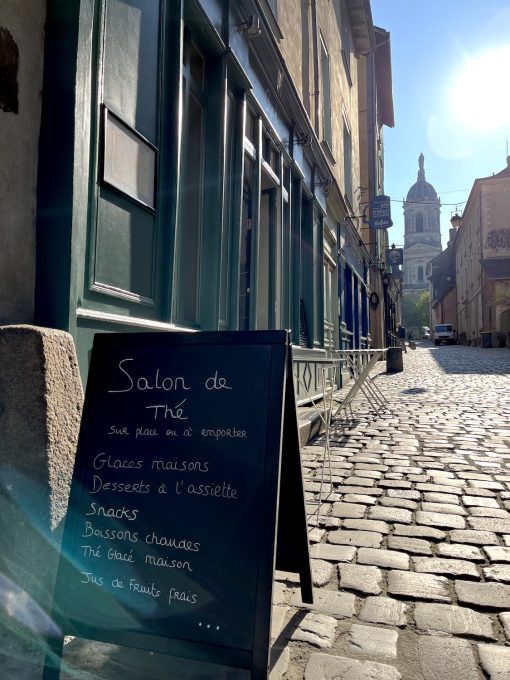 Salon de
Thé
Sur place ou à emporter
Glaces maisons
Desserts à l'assiette
Snacks
Boissons chaudes
Thé Glacé maison
Jus de Fruits frais
...